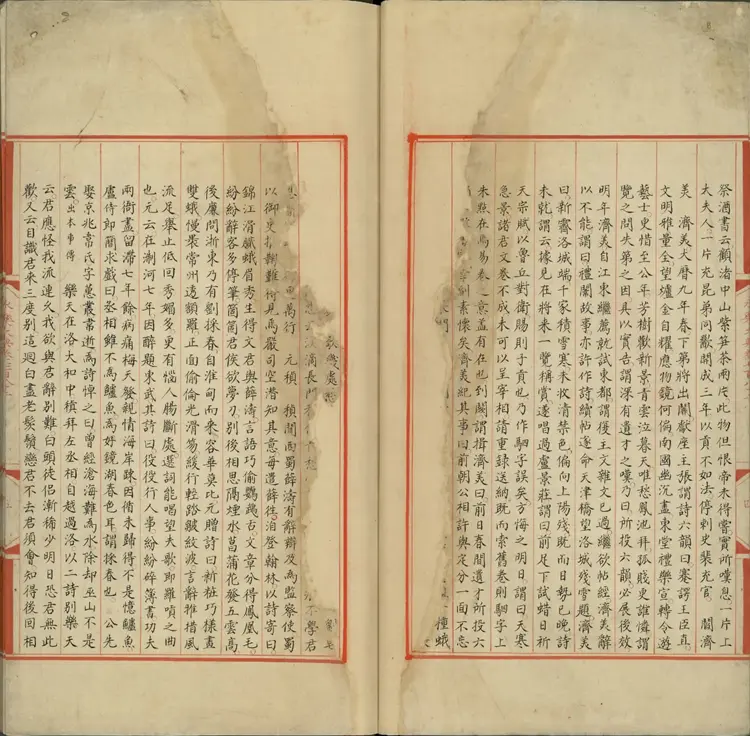 祭酒書云顧渚中山紫笋茶兩片此物但恨帝未得嘗實所嘆息一片上
太夫人一片充昆弟同歠開成三年以貢不如法停刺史裴充官　閻濟
美　濟美大曆九年春下第將出關獻座主張謂詩六韻曰謇諤王臣直
文明雅量全望爐金自耀應物鏡何偏南國幽沉盡東堂禮樂宣轉令遊
藝士更惜至公年芳樹歡新景青雲泣暮天唯愁鳳池拜孤賤更誰憐謂
覽之問失第之因具以實告謂深有遺才之嘆乃曰所投六韻必展後效
明年濟美自江東繼薦就試東都謂復王文雜文已過繼欲帖經濟美辭
以不能謂曰禮闈故事亦許作詩續帖遂命天津橋望洛城殘雪題濟美
曰新霽洛城端千家積雪寒未收清禁色偏向上陽殘既而日勢已晚詩
未就謂云據見在將來一覽稱賞遂唱過盧景莊謂曰前足下試蜡日祈
天宗賦以魯丘對衛賜則子貢也乃作駟字誤矣方悔之明日謂曰天寒
急景諸君文卷不成未可以呈宰相請重錄送納既而索舊卷則駟字上
朱點在焉易卷之意蓋有在也到闕謂揖濟美曰前日春間遺才所投六
副素懷矣濟美紀其事曰前朝公相許與定分一面不忘
種蛾
教幾處愁
滴長門　不學君
萬行　元稹　稹聞西蜀薛濤有辭辯及為監察使蜀
以御史推鞫難得見焉嚴司空潛知其意每遣薛往洎登翰林以詩寄曰
錦江滑膩蛾眉秀生得文君與薛濤言語巧偷鸚鵡舌文章分得鳳凰毛
紛紛辭客多停筆箇箇君侯欲夢刀別後相思隔煙水菖蒲花發五雲高
後廉問浙東乃有劉採春自淮甸而來容華莫比元贈詩曰新粧巧樣畫
雙蛾慢裹常州透額羅正面偷倫光滑笏緩行輕踏皺紋波言辭推措風
流足舉止低回秀媚多更有惱人腸斷處選詞能唱望夫歌即羅嗊之曲
也元云在浙河七年因醉題東武其詩曰役役行人事紛紛碎簿書功夫
兩衙盡留滯七年餘病痛梅天發親情海岸疎因循未歸得不是憶鱸魚
盧侍御簡求戲曰丞相雖不為鱸魚為好鏡湖春色耳謂採春也　公先
娶京兆韋氏字蕙叢常逝為詩悼之曰曾經滄海難為水除却巫山不是
雲出本事傳　樂天在洛大和中稹拜左丞相自越過洛以二詩別樂天
云君應怪我流連久我欲與君辭別難白頭徒侶漸稀少明日恐君無此
歡又云自識君來三度別這迴白盡老髭鬚戀君不去君須會知得後回相